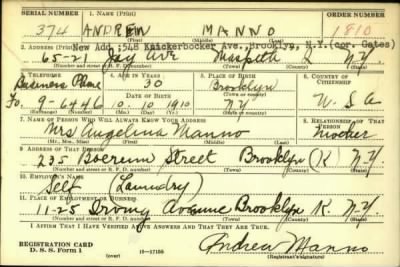 SERIAL NUMBER 1. NAME (Print) ORDER NUMBER (Print)
374 ANDREW MANNO 1810
(First) (Middle) (Last)
New Add. 1548 Knickerbocker Ave., Brooklyn, N.Y. (cor. Gates)
2. ADDRESS (Print)
65-21 Jay Ave Maspeth N.Y.
(Number and street or R. F. D. number) (Town) (County) (State)
3. TELEPHONE 4. AGE IN YEARS 5. PLACE OF BIRTH 6. COUNTRY OF CITIZENSHIP
Business Phone 30 Brooklyn
DATE OF BIRTH (Town or county)
Fo. 9-6446 10. 10. 1910 N.Y. U.S.A
(Exchange) (Number) (Mo.) (Day) (Yr.) (State or country)
7. NAME OF PERSON WHO WILL ALWAYS KNOW YOUR ADDRESS 8. RELATIONSHIP OF THAT PERSON
Mrs Angelina Manno Mother
(Mr., Mrs., Miss) (First) (Middle) (Last)
9. ADDRESS OF THAT PERSON
235 Boerum Street Brooklyn (K) N.Y.
(Number and street or R. F. D. number) (Town) (County) (State)
10. EMPLOYER'S NAME
Self (Laundry)
11. PLACE OF EMPLOYMENT OR BUSINESS
11-25 Irving Avenue Brooklyn K. N.Y.
(Number and street or R. F. D. number) (Town) (County) (State)
I AFFIRM THAT I HAVE VERIFIED ABOVE ANSWERS AND THAT THEY ARE TRUE.
REGISTRATION CARD
D. S. S. Form 1 (over) 16-17105 Andrew Manno
(Registrant's signature)